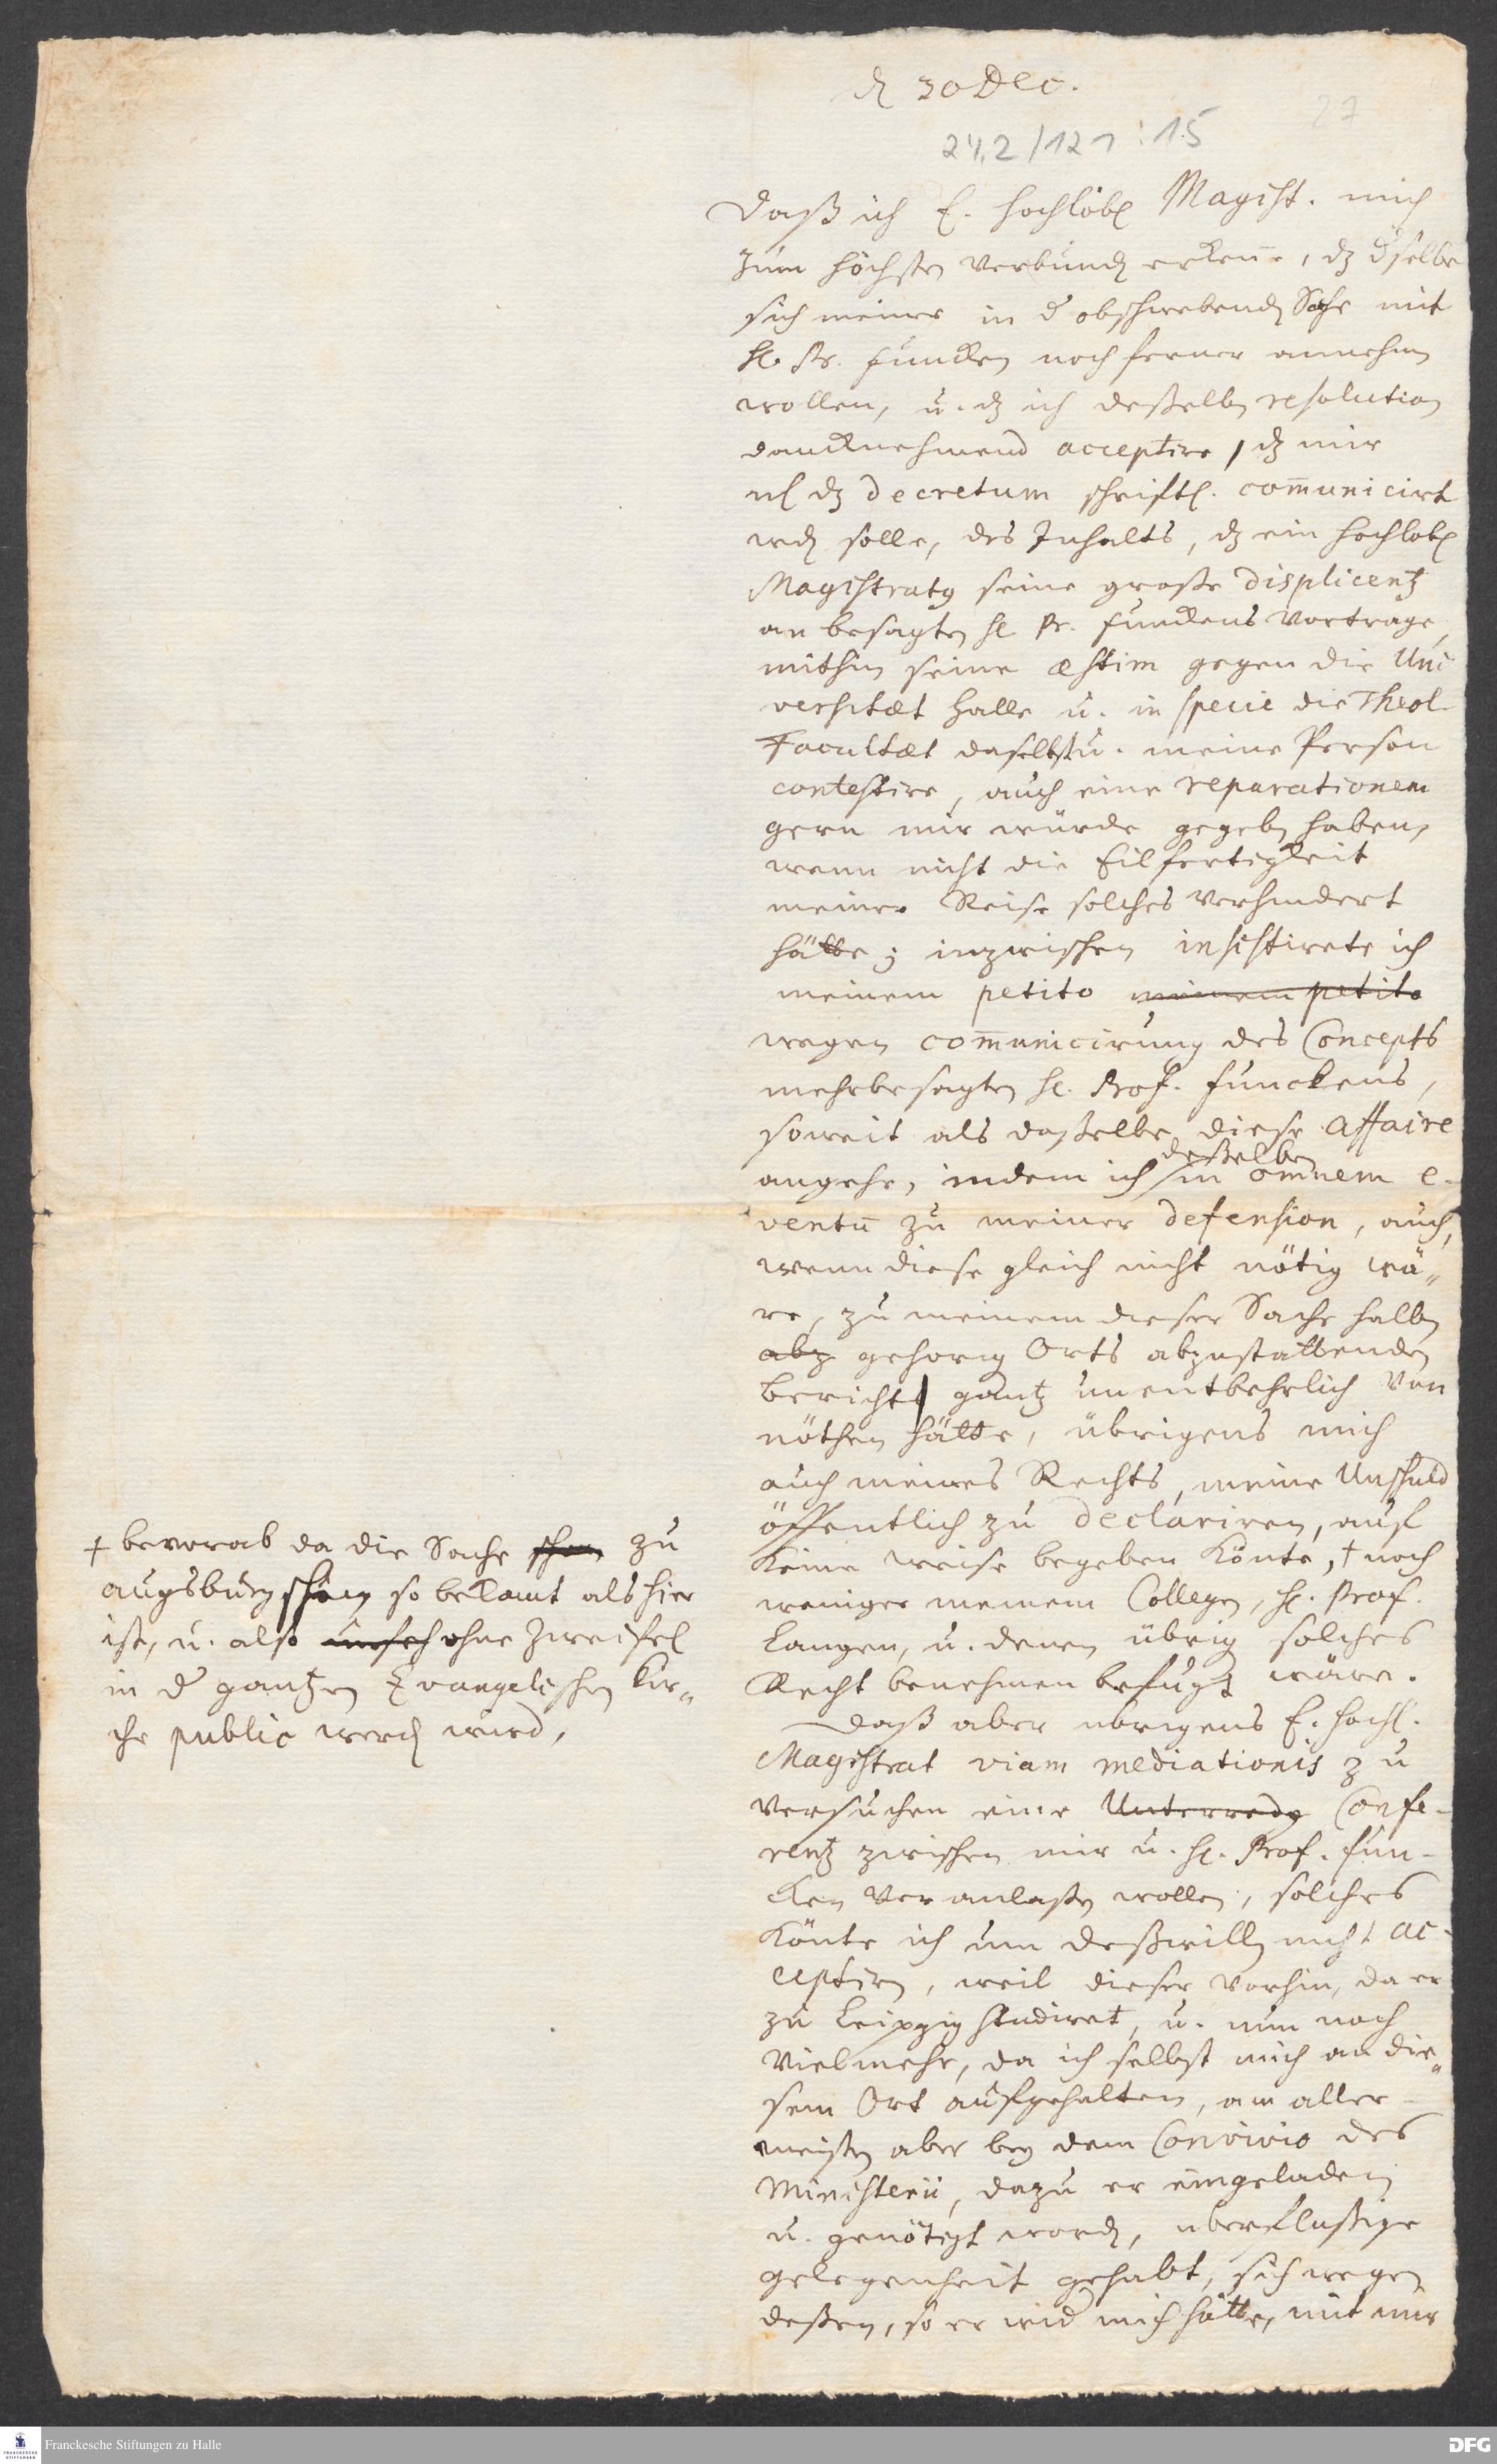 d 30 Dec.
27
24,2/121:15
Daß ich E. hochlöbl Magist. mich
zum höchsten verbunden erkenne, dz dselbe
sich meiner in d obschwebenden Sache mit
H. Pr. Funcken noch ferner annehmen
wollen, u. dz ich deßelben resolution
dancknehmend acceptire, dz mir
nl dz decretum schriftl. com̅unicirt
werden solle, des Inhalts, dz ein Hochlobl
Magistratg seine große displicentz
an besagten H Pr. Funckens Vortrage,
mithin seine æstim gegen die Uni
versitæt Halle u. in specie die Theol.
Facultæt daselbst u. meine Person
contestire, auch eine reparationem
gern mir würde gegeben haben,
wenn nicht die Eilfertigkeit
meiner Reise solches verhindert
hätte; inzwischen insistirete ich
meinem petito meinem petito
wegen com̅unicirung des Concepts
mehrbesagten H. Prof. Funckens,
soweit als daßelbe diese Affaire
angehe, indem ich deßelben in omnem e-
ventu̅ zu meiner defension, auch,
wenn diese gleich nicht nötig wä-
re, zu meinem dieser Sache halben
abz gehorig Orts abzustattenden
Bericht gantz unentbehrlich von
nöthen hätte, übrigens mich
auch meines Rechts, meine Unschuld
öffentlich zu declariren, auf
keine weise begeben könte, † noch
weniger meinem Collegen, H. Prof.
Langen, u. denen übrig solches
Recht benehmen befugt wäre.
† bevorab da die Sache schon zu
Augsburg schon so bekant als hier
ist, u. also ohne Zweifel
in d gantzen Evangelischen Kir-
che public werden wird,
Daß aber ubrigens E. Hochl.
Magistrat viam mediationis zu
versuchen eine Unterredg Confe-
rentz zwischen mir u. H. Prof. Fun-
cken veranlaßen wollen, solches
könte ich um deßwillen nicht ac-
ceptiren, weil dieser vorhin, da er
zu Leipzig studiret, u. nun noch
vielmehr, da ich selbst mich an die-
sem Ort aufgehalten, am aller-
meisten aber bey dem Convivio des
Ministerii, dazu er eingeladen
u. genötigt worden, uberflußige
gelegenheit gehabt, sich wegen
deßen, so er wid mich hätte, mit mir
Franckesche Stiftungen zu Halle
DFG